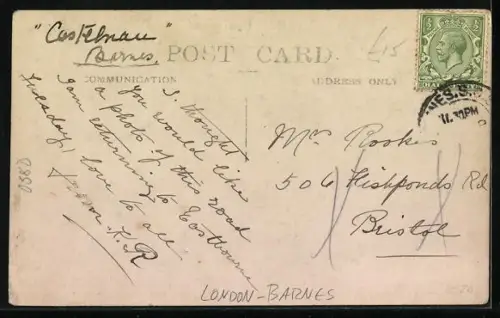 "Castelnau"
Barnes.
POST CARD.
£15
COMMUNICATION
ADDRESS ONLY
I thought
you would like
a photo of this road
I am returning to Eastbourne
Tuesday. love to all
from K.R
Mr Rookes
506 Fishponds Rd
Bristol
NES.S.
11.30PM
0580
LONDON-BARNES